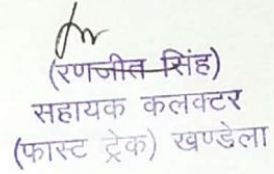 (रणजीत सिंह)
सहायक कलक्टर
(फास्ट ट्रेक) खण्डेला